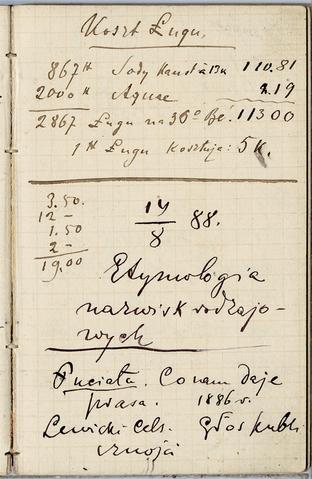 Koszt Ługu.
867 H Sody Kaust à 13 k 110.81
2000 H Aquae 2.19
2867 Ługu na 36° Bé. 113 00
1 H Ługu Kosztuje: 5 K.
3.50.
12 –
1.50
2 –
19.00
14/8 88.
Etymologia
nazwisk rodzajo-
wych
Puciata. Co nam daje
prasa. 1886 r.
Lewicki Cels. Głos publi